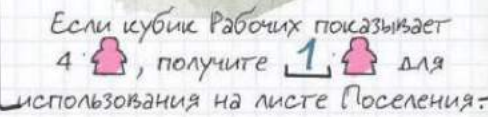 Если кубик Рабочих показывает
4 , получите 1 для
использования на листе Поселения.